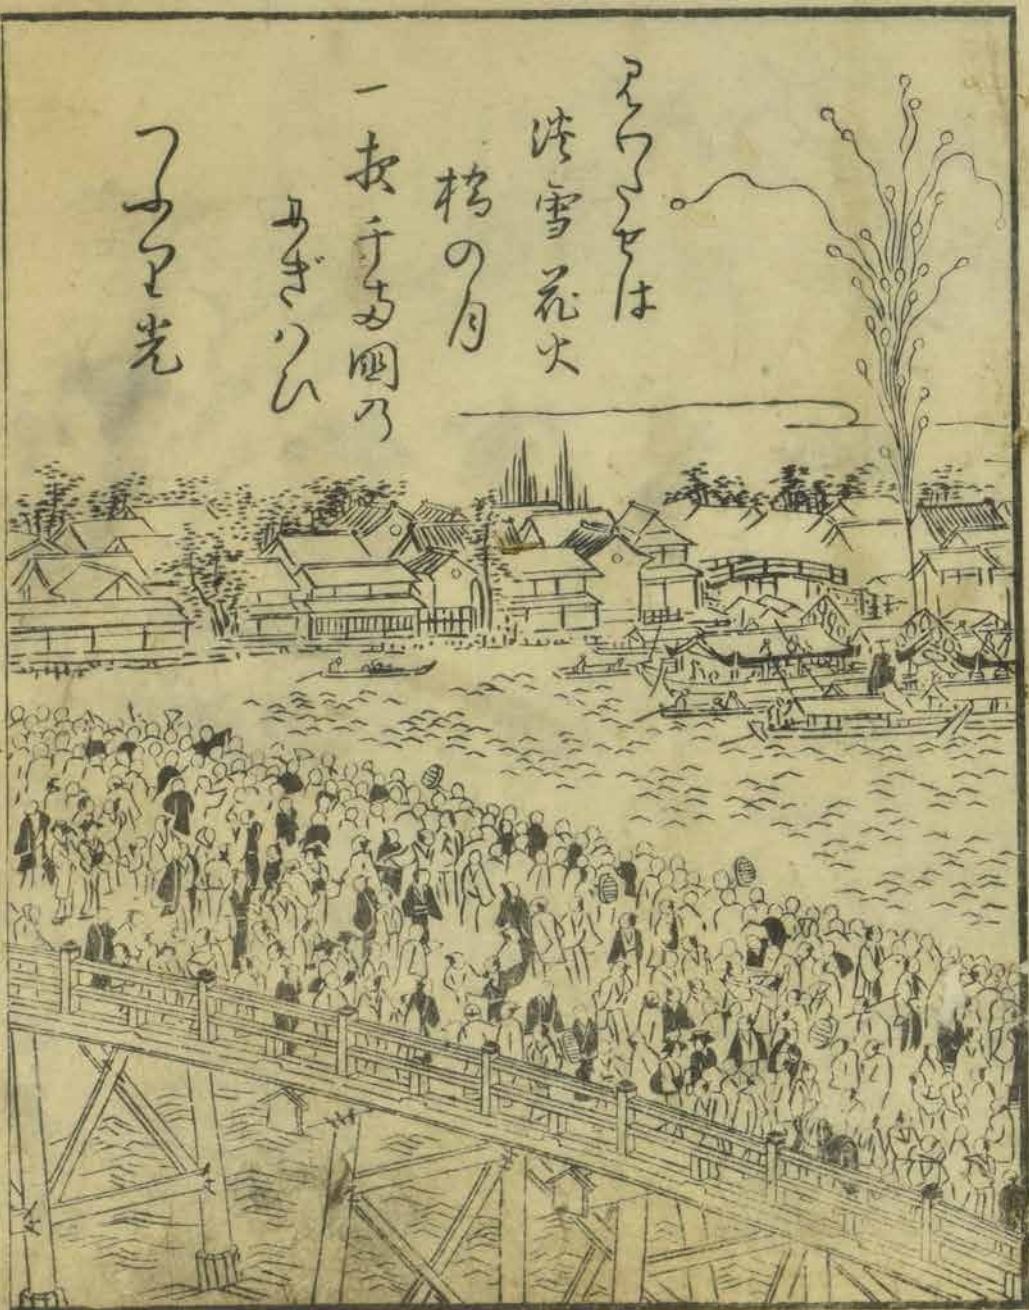 見わたせは
淡雪花火
橋の月
一夜千両国の
にぎハひ
つふり光